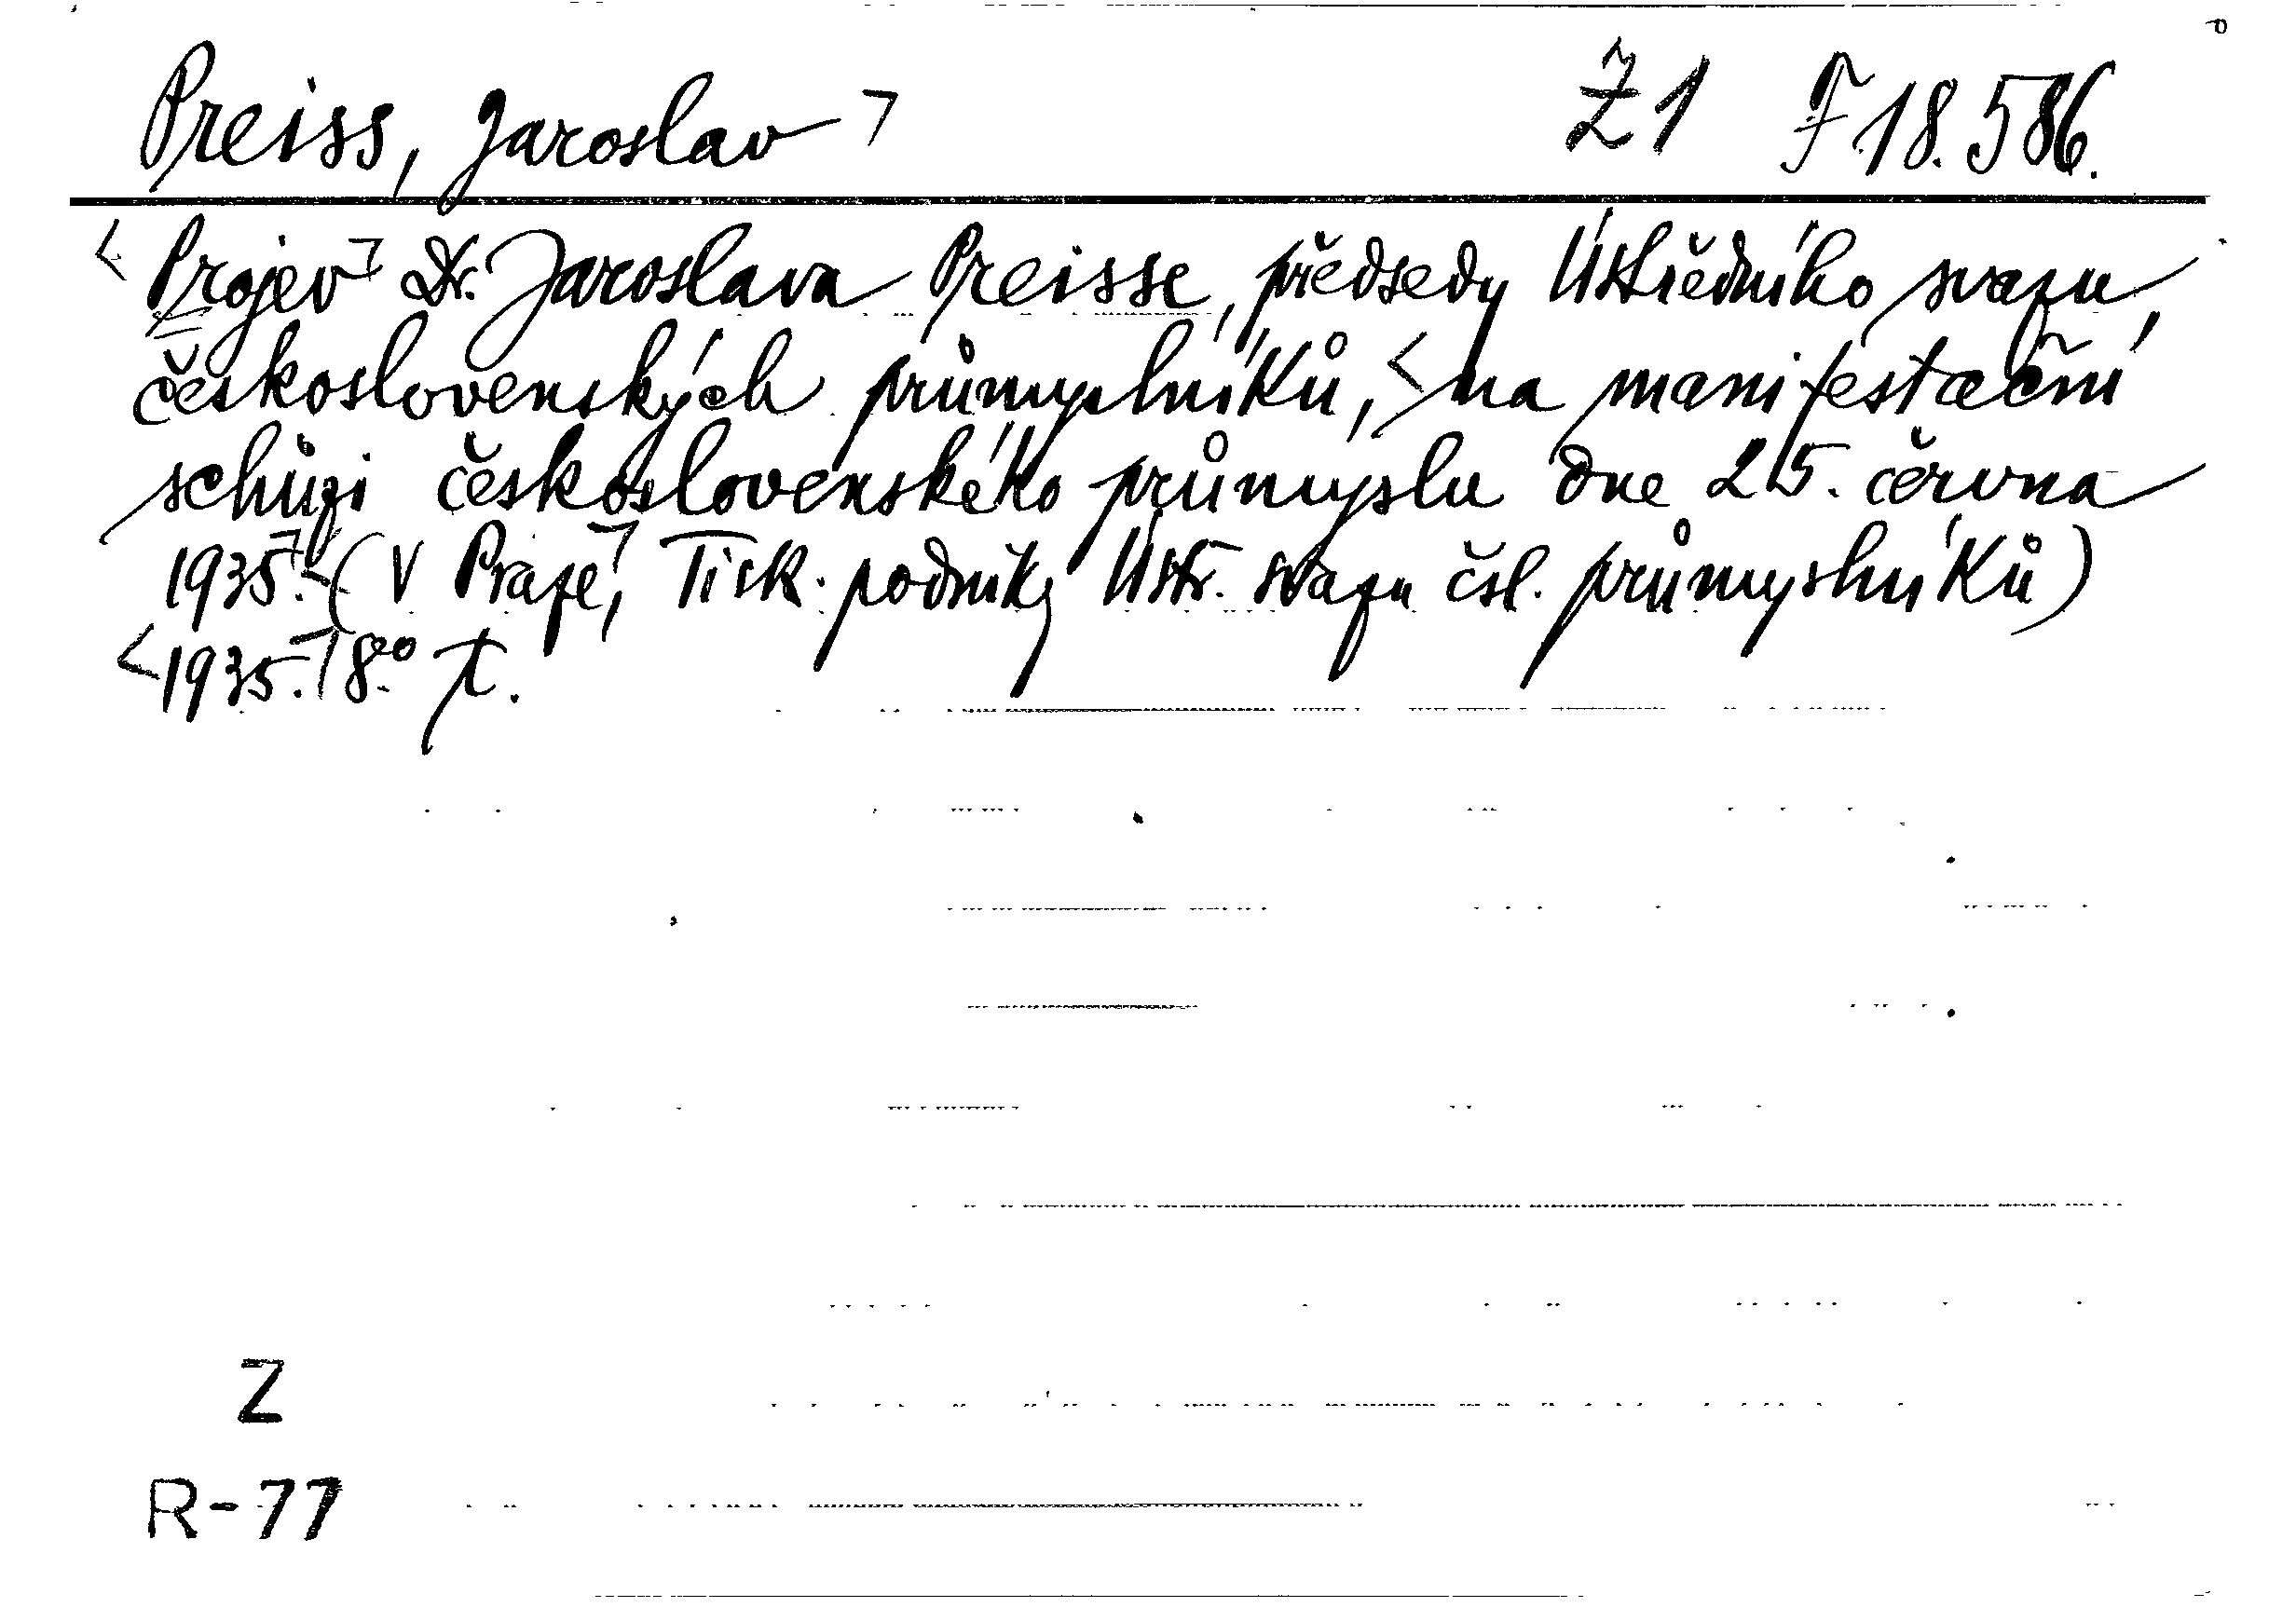 Preiss, Jaroslav ㄱ Ž1 F 18.586.
< Projev ㄱ Dr. Jaroslava Preisse, předsedy Ústředního svazu
československých průmyslníků, < na manifestační
schůzi československého průmyslu dne 25. června
1935.ㄱ < (V Prazeㄱ, Tisk. podniky Ústř. svazu čsl. průmyslníků)
< 1935.ㄱ 8° t.
Z
R-77